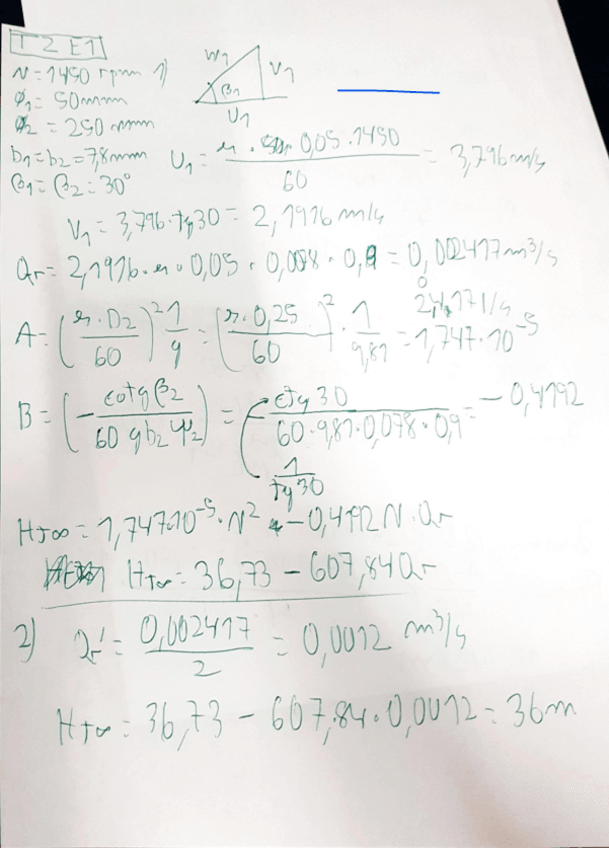 T2 E1
N = 1450 rpm 1)
W1
V1
β1
U1
Ø1 = 50mm
Ø2 = 250 mm
b1 = b2 = 7,8mm
U1 = π · 0,05 · 1450 / 60 = 3,796 m/s
β1 = β2 = 30°
V1 = 3,796 · tg 30 = 2,1916 m/s
Qr = 2,1916 · π · 0,05 · 0,008 · 0,9 = 0,002417 m³/s
A = (π · D2 / 60)² 1/g = (π · 0,25 / 60)² · 1/9,81 = 1,747 · 10⁻⁵
B = (- cotg β2 / 60 g b2 ψ2) = (- ctg 30 / 60 · 9,81 · 0,078 · 0,9 = -0,4192
1 / tg 30
HT∞ = 1,747·10⁻⁵ · N² - 0,4192 N · Qr
HT∞ = 36,73 - 607,84 Qr
2) Qr' = 0,002417 / 2 = 0,0012 m³/s
HT∞ = 36,73 - 607,84 · 0,0012 = 36m